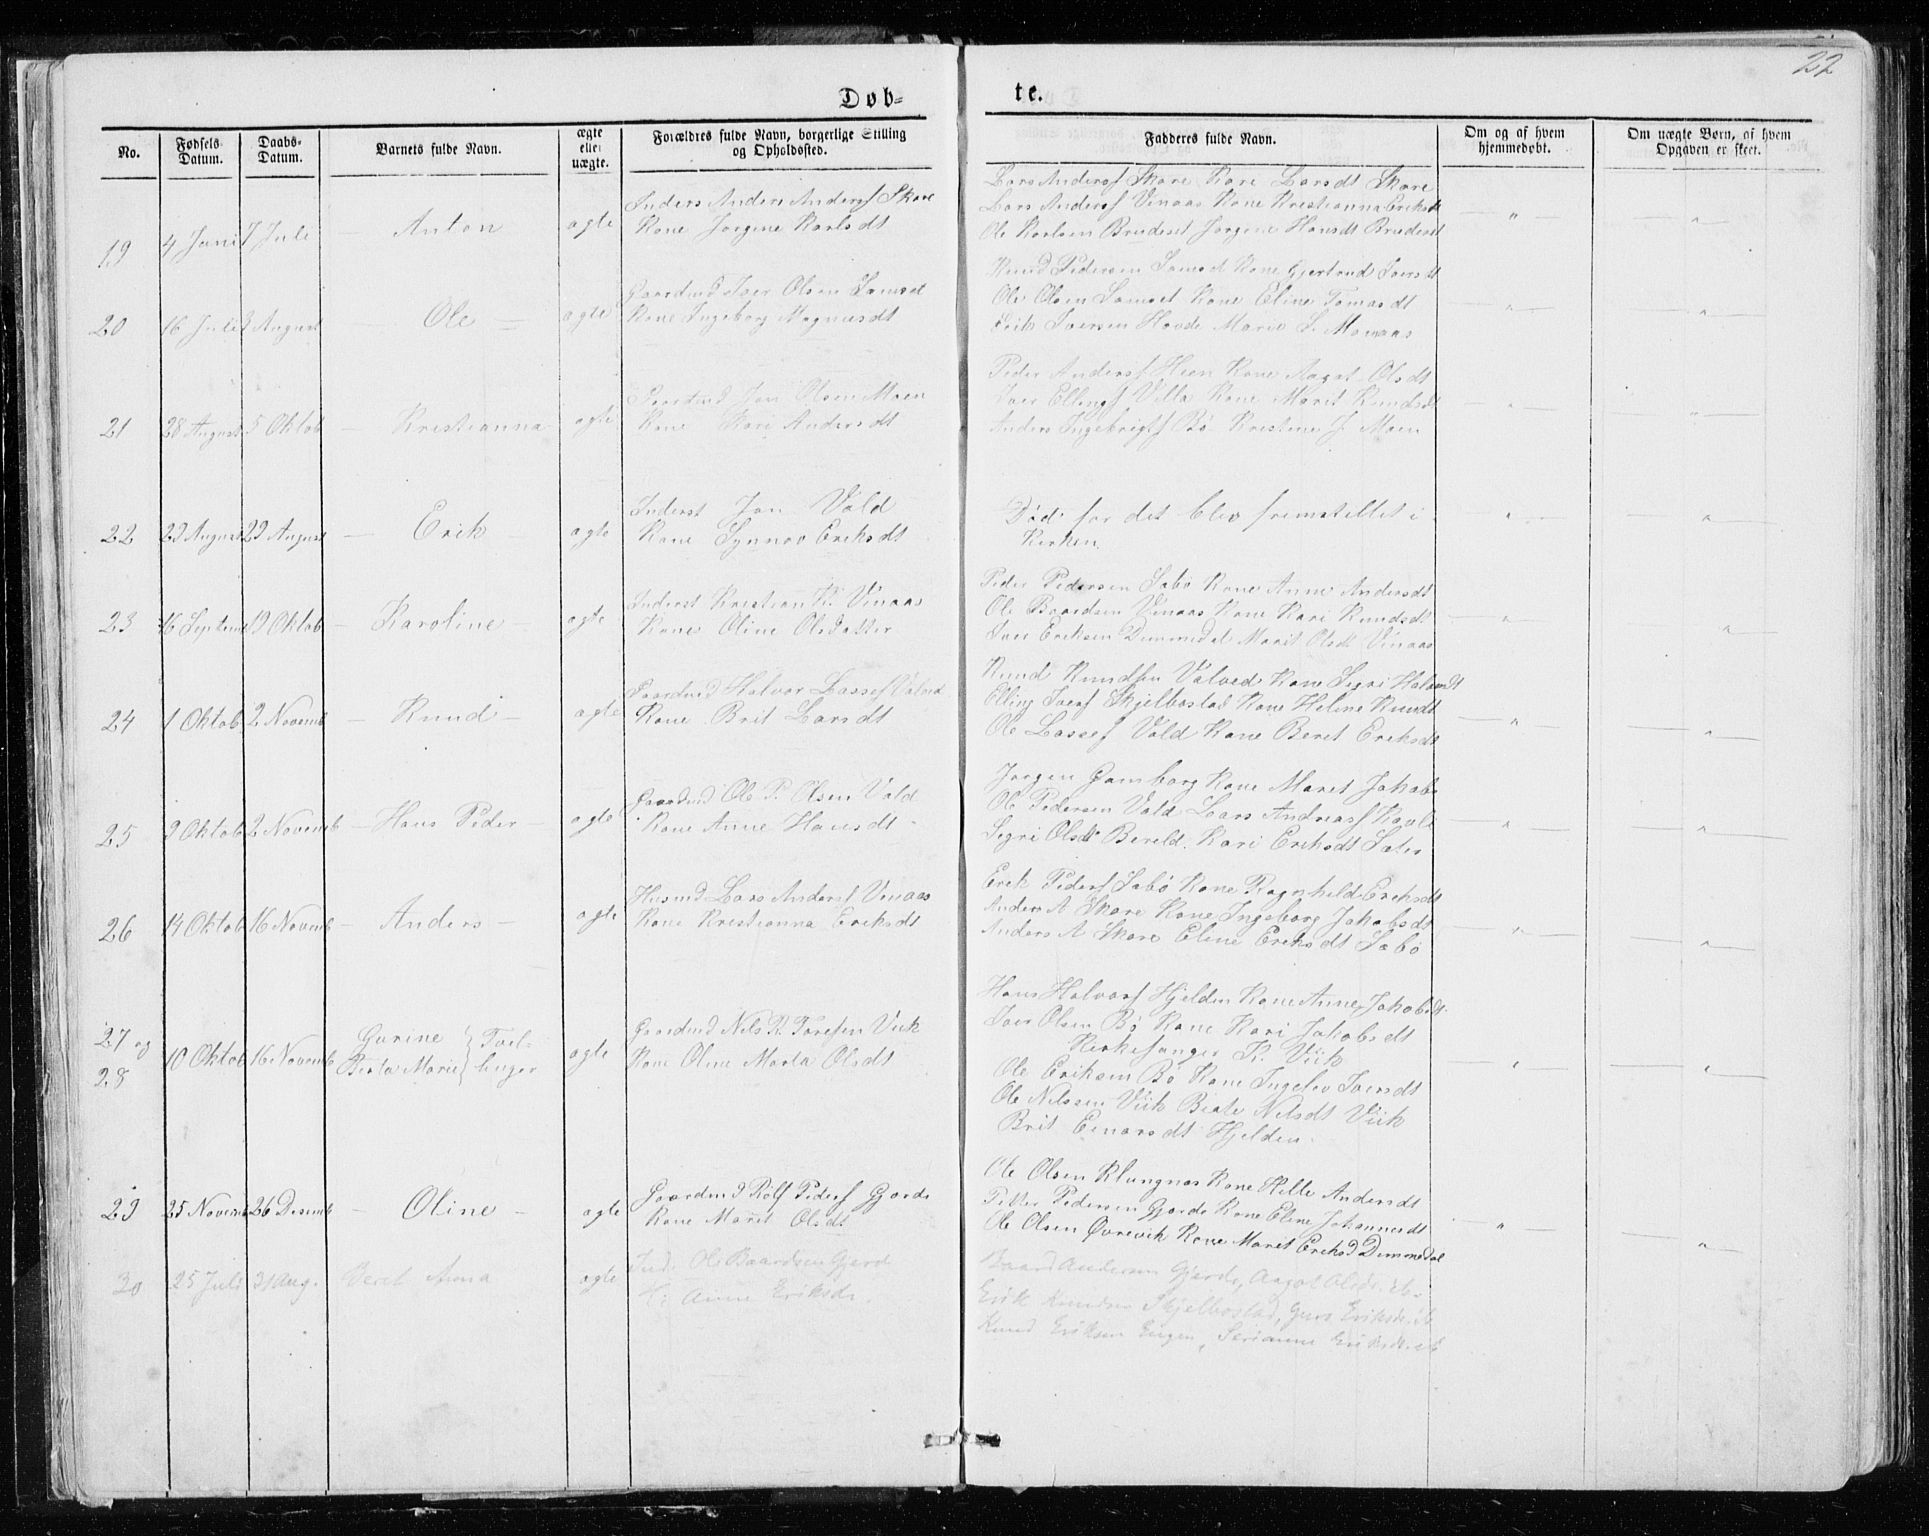 22
Døb=
te.
No.
Fødsels-Datum.
Daabs-Datum.
Barnets fulde Navn.
ægte eller uægte.
Forældres fulde Navn, borgerlige Stilling og Opholdssted.
Fadderes fulde Navn.
Om og af hvem hjemmedøbt.
Om uægte Børn, af hvem Opgaven er skeet.
19 4 Juni 7 Juli — Anton ægte
Inderst Anders Andersf Skare
Kone Jorgine Karlsdt
Lars Andersf Skare Kone Kari Larsdt Skare
Lars Andersf Vinaas Kone Kristianna Eriksdt
Ole Karlsen Brudeset Jorgine Hansdt Brudeset
20 16 Juli August — Ole — ægte
Gaardmd Iver Olsen Samset
Kone Ingeborg Magnusdt
Knud Pedersen Samset Kone Gjertrud Iversdt
Ole Olsen Samset Kone Eline Tomasdt
Erik Iversen Hovde Marie L. Monsaas
21 28 August 5 Oktob — Kristianna ægte
Gaardmd Jon Olsen Moen
Kone Kari Andersdt
Peder Andersf Heen Kone Aagot Olsdt
Iver Ellingf Villa Kone Marit Knudsdt
Anders Ingebrigtf Bø Kristine J. Moen
22 22 August 29 August — Erik — ægte
Inderst Jon Vold
Kone Synnøv Eriksdt
Død før det blev fremstillet i
Kirken.
23 16 Septemb 19 Oktob — Karoline — ægte
Inderst Kristian K. Vinaas
Kone Oline Olsdatter
Peder Pedersen Sæbø Kone Anne Andersdt
Ole Baardsen Vinaas Kone Kari Knudsdt
Iver Eriksen Dimmedal Marit Olsdt Vinaas
24 1 Oktob 2 Novemb — Knud — ægte
Gaardmd Halvor Lassef Valved
Kone Brit Larsdt
Knud Knudsen Valved Kone Sigri Halvordt
Elling Iversf Skjelbostad Kone Heline Knudt
Ole Lassef Vold Kone Beret Eriksdt
25 9 Oktob 2 Novemb — Hans Peder — ægte
Gaardmd Ole P. Olsen Vold
Kone Anne Hansdt
Jørgen Gamborg Kone Maret Jakobs
Ole Pedersen Vold Lars Andreasf Kavli
Sigri Olsdt Bereld. Kari Eriksdt Sæter
26 14 Oktob 16 Novemb — Anders — ægte
Husmd Lars Andersf Vinaas
Kone Kristianna Eriksdt
Erik Pedersf Sæbø Kone Ragnhild Eriksdt
Anders A Skare Kone Ingeborg Jakobsdt
Anders A Skare Eline Eriksdt Sæbø
27 og
28 10 Oktob 16 Novemb Gurine } Tvil-
Berta Marie } linger ægte
Gaardmd Nils R. Toresen Viik
Kone Oline Marta Olsdt
Hans Halvorsf Hjelden Kone Anne Jakobsdt
Iver Olsen Bø Kone Kari Jakobsdt
Kirkesanger K. Viik
Ole Eriksen Bø Kone Ingelev Iversdt
Ole Nilssen Viik Beate Nilsdt Viik
Brit Einarsdt Hjelden.
29 25 Novemb 26 Desemb — Oline — ægte
Gaardmd Rolf Pedersf Gjerde
Kone Marit Olsdt
Ole Olsen Klungnæs Kone Helle Andersdt
Petter Pedersen Gjerde Kone Eline Johannesdt
Ole Olsen Øvrevik Kone Marit Eriksd Dimmedal
30 25 Juli 31 Aug. Beret Anna ægte
Ind. Ole Baardsen Gjerd
H: Anne Eriksdr.
Baard Andersen Gjerde, Aagot Olsdr. ib.
Erik Knudsen Skjelbostad, Guro Eriksdr. ib
Knud Eriksen Engen, Serianne Eriksdt ib